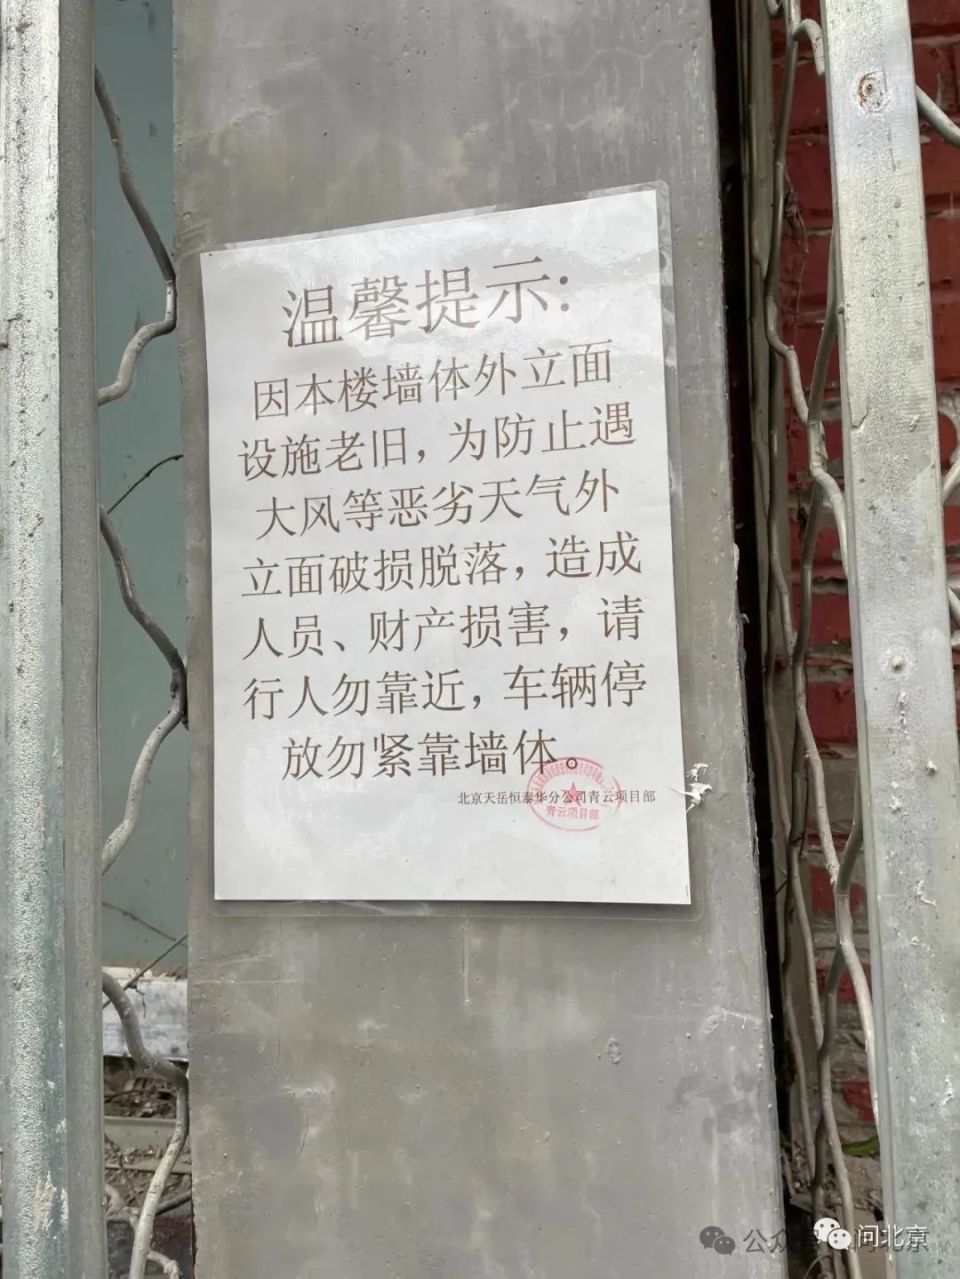 温馨提示:
因本楼墙体外立面
设施老旧，为防止遇
大风等恶劣天气外
立面破损脱落，造成
人员、财产损害，请
行人勿靠近，车辆停
放勿紧靠墙体。
北京天岳恒泰华分公司青云项目部
青云项目部
公众号
问北京